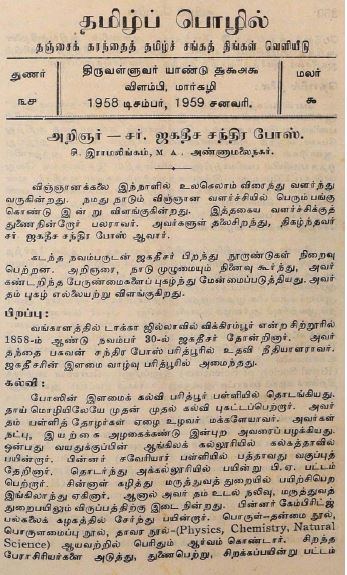 தமிழ்ப் பொழில்
தஞ்சைக் கரந்தைத் தமிழ்ச் சங்கத் திங்கள் வெளியீடு
துணர்
திருவள்ளுவர் யாண்டு
மலர்
விளம்பி, மார்கழி
௩௪
1958 டிசம்பர், 1959 சனவரி.
௯
அறிஞர் — சர். ஜகதீச சந்திர போஸ்.
சி. இராமலிங்கம், M A., அண்ணாமலைநகர்.
விஞ்ஞானக்கலை இந்நாளில் உலகெலாம் விரைந்து வளர்ந்து
வருகின்றது. நமது நாடும் விஞ்ஞான வளர்ச்சியில் பெரும்பங்கு
கொண்டு இன்று விளங்குகின்றது. இத்தகைய வளர்ச்சிக்குத்
துணைநின்றோர் பலராவர். அவர்களுள் தலைசிறந்து, திகழ்ந்தவர்
சர் ஜகதீச சந்திர போஸ் ஆவார்.
கடந்த நவம்பருடன் ஜகதீசர் பிறந்து நூறாண்டுகள் நிறைவு
பெற்றன. அறிஞரை, நாடு முழுமையும் நினைவு கூர்ந்து, அவர்
கண்டறிந்த பேருண்மைகளைப் புகழ்ந்து மேன்மைப்படுத்தியது. அவர்
தம் புகழ் எல்லையற்று விளங்குகிறது.
பிறப்பு:
வங்காளத்தில் டாக்கா ஜில்லாவில் விக்கிரம்பூர் என்ற சிற்றூரில்
1858-ம் ஆண்டு நவம்பர் 30-ல் ஜகதீசர் தோன்றினார். அவர்
தந்தை பகவன் சந்திர போஸ் பரித்பூரில் உதவி நீதியாளராவர்.
ஜகதீசரின் இளமை வாழ்வு பரித்பூரில் அமைந்தது.
கல்வி:
போஸின் இளமைக் கல்வி பரித்பூர் பள்ளியில் தொடங்கியது.
தாய் மொழியிலேயே முதன் முதல் கல்வி புகட்டப்பெற்றார். அவர்
தம் பள்ளித் தோழர்கள் ஏழை உழவர் மக்களேயாவர். அவர்கள்
நட்பு, இயற்கை அழகைக்கண்டு இன்புற அவரைப் பழக்கியது.
ஒன்பது வயதுக்குப்பின் ஆங்கிலக் கல்லூரியில் கல்கத்தாவில்
பயின்றார். பின்னர் சவேரியார் பள்ளியில் பத்தாவது வகுப்புத்
தேறினார். தொடர்ந்து அக்கல்லூரியில் பயின்று பி.ஏ. பட்டம்
பெற்றார். சின்னாள் கழித்து மருத்துவத் துறையில் பயிற்சிபெற
இங்கிலாந்து ஏகினார். ஆனால் அவர் தம் உடல் நலிவு, மருத்துவத்
துறைபயிலும் விருப்பத்திற்கு இடை நின்றது. பின்னர் கேம்பிரிட்ஜ்
பல்கலைக் கழகத்தில் சேர்ந்து பயின்றார். பொருள்-தன்மை நூல்,
பொருளமைப்பு நூல், தாவர நூல்-(Physics, Chemistry, Natural
Science) ஆயவற்றில் பெரிதும் ஆர்வம் கொண்டார். சிறந்த
பேராசிரியர்களை அடுத்து, துணைபெற்று, சிறக்கப்பயின்று பட்டம்